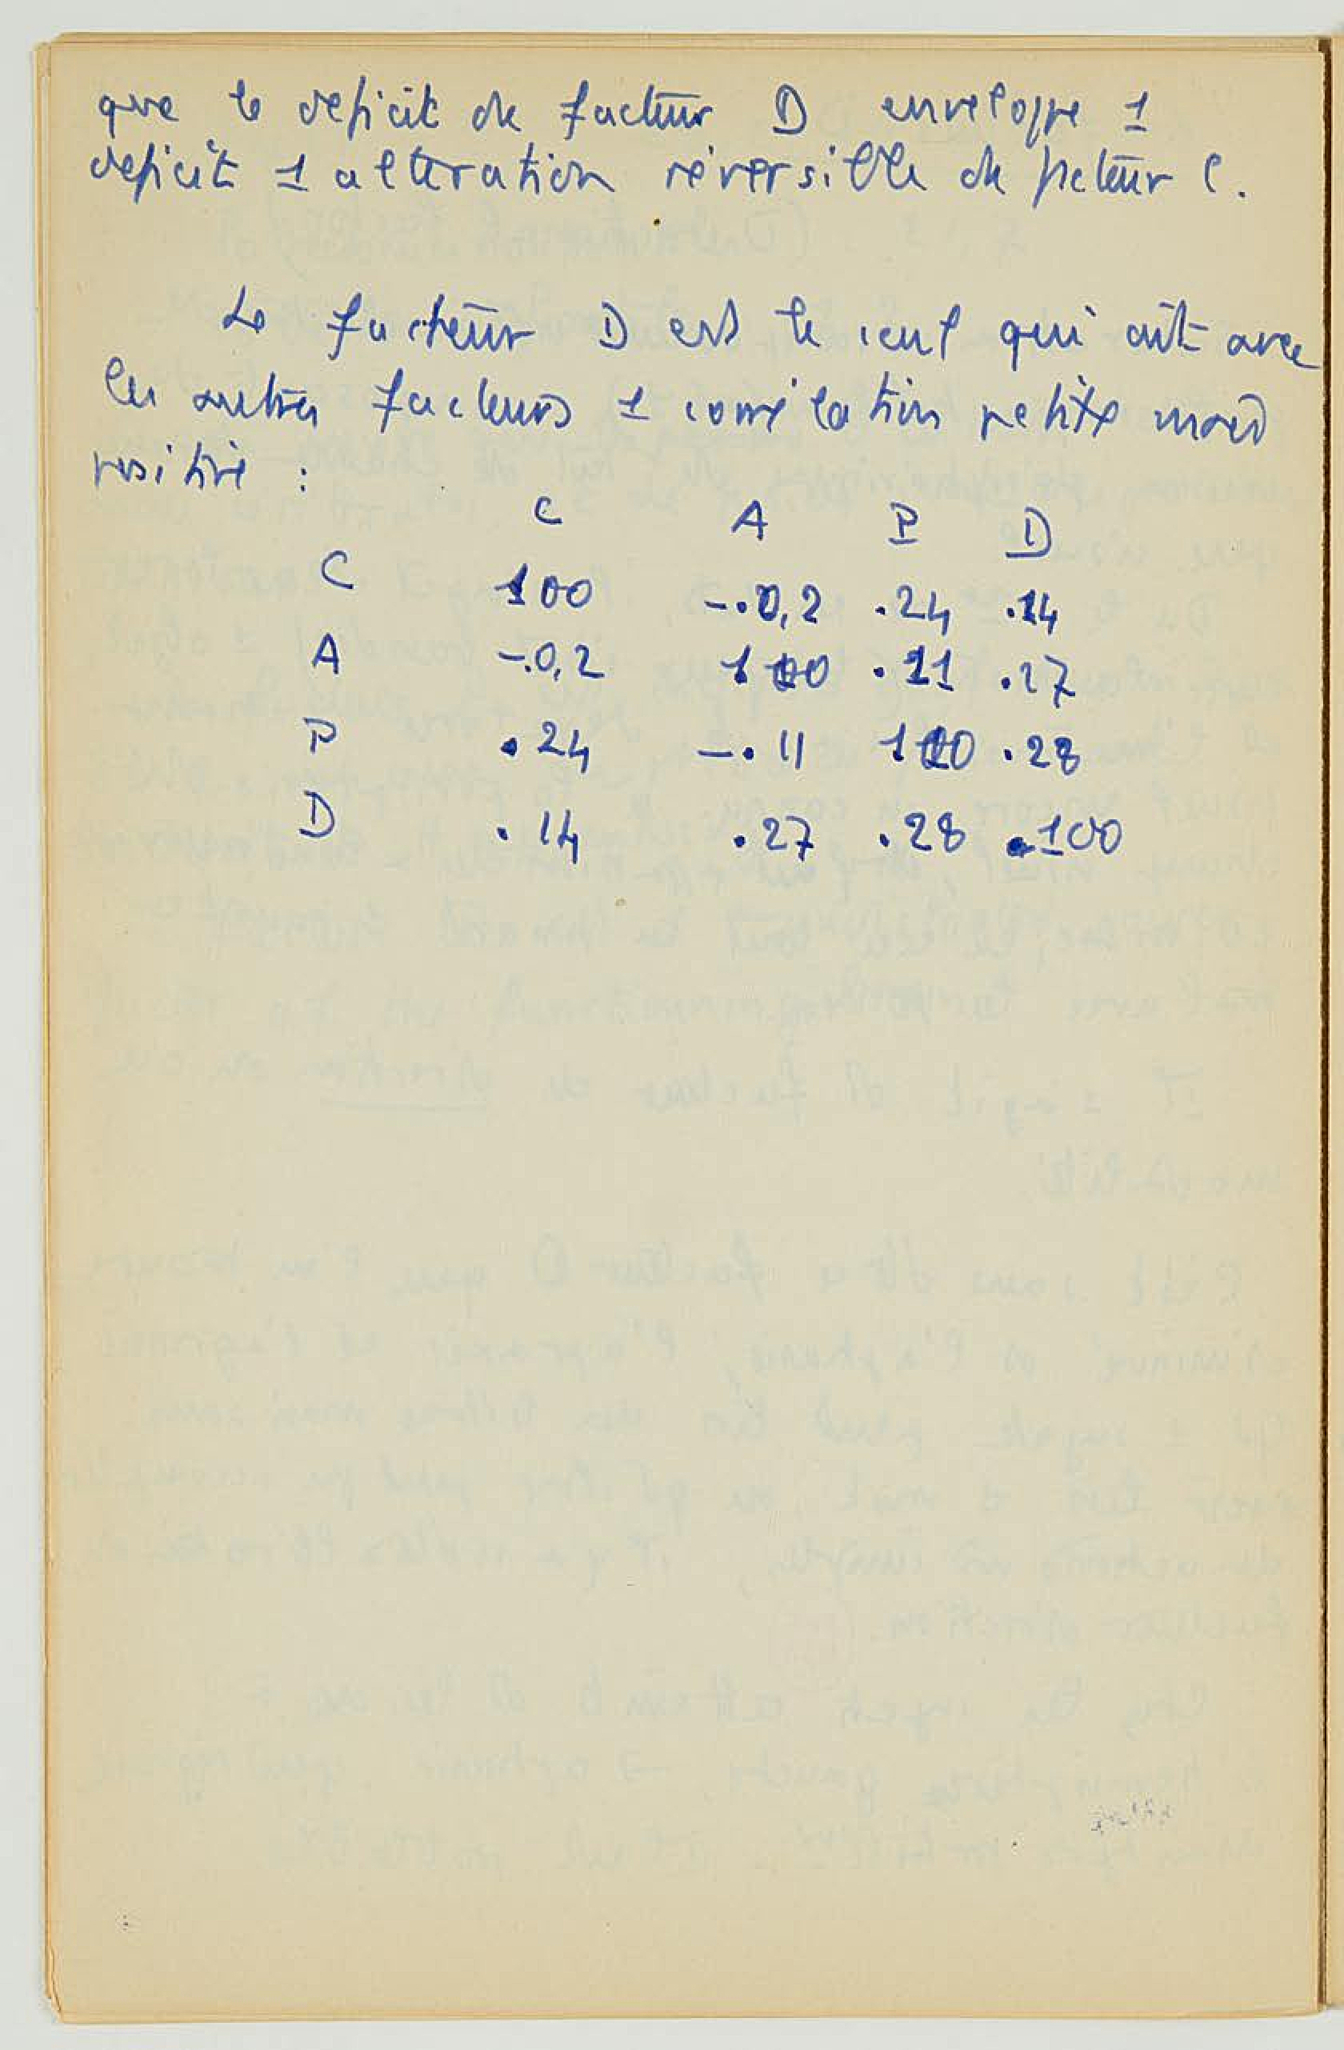 que le deficit de facteur D enveloppe 1
deficit 1 alteration réversible de facteur C.
Le facteur D est le seul qui ait avec
les autres facteurs 1 corrélation petite mais
positive :
C A P D
C 100 -.0,2 .24 .14
A -.0,2 100 .11 .27
P .24 -.11 100 .28
D .14 .27 .28 .100